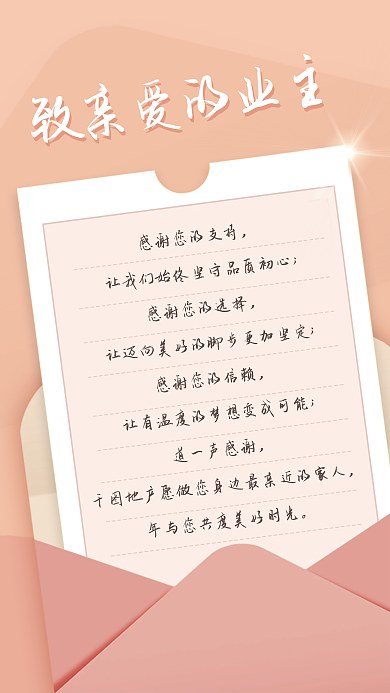 致亲爱的业主
感谢您的支持，
让我们始终坚守品质初心；
感谢您的选择，
让迈向美好的脚步更加坚定；
感谢您的信赖，
让有温度的梦想变成可能；
道一声感谢，
千图地产愿做您身边最亲近的家人，
年与您共度美好时光。